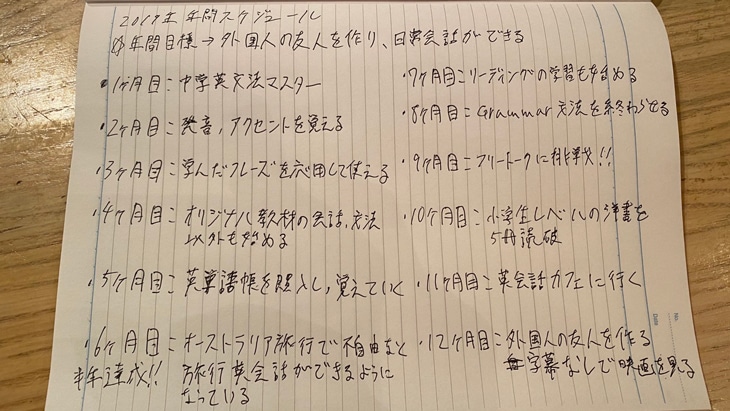 2019年 年間スケジュール
年間目標→外国人の友人を作り、日常会話ができる
・1ヶ月目：中学英文法マスター
・2ヶ月目：発音、アクセントを覚える
・3ヶ月目：学んだフレーズを応用して使える
・4ヶ月目：オリジナル教材の会話、文法
以外も始める
・5ヶ月目：英単語帳を購入し、覚えていく
・6ヶ月目：オーストラリア旅行で不自由なく
半年達成!! 旅行英会話ができるように
なっている
・7ヶ月目：リーディングの学習も始める
・8ヶ月目：Grammar 文法を終わらせる
・9ヶ月目：フリートークに挑戦!!
・10ヶ月目：小学生レベルの洋書を
5冊読破
・11ヶ月目：英会話カフェに行く
・12ヶ月目：外国人の友人を作る
字幕なしで映画を見る